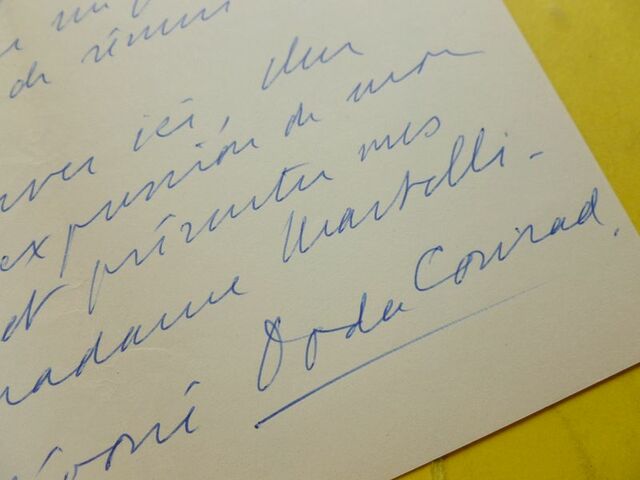 un
de réunir
ici, cher
expression de mon
et présenter mes
madame Martelli -
Doda Conrad.